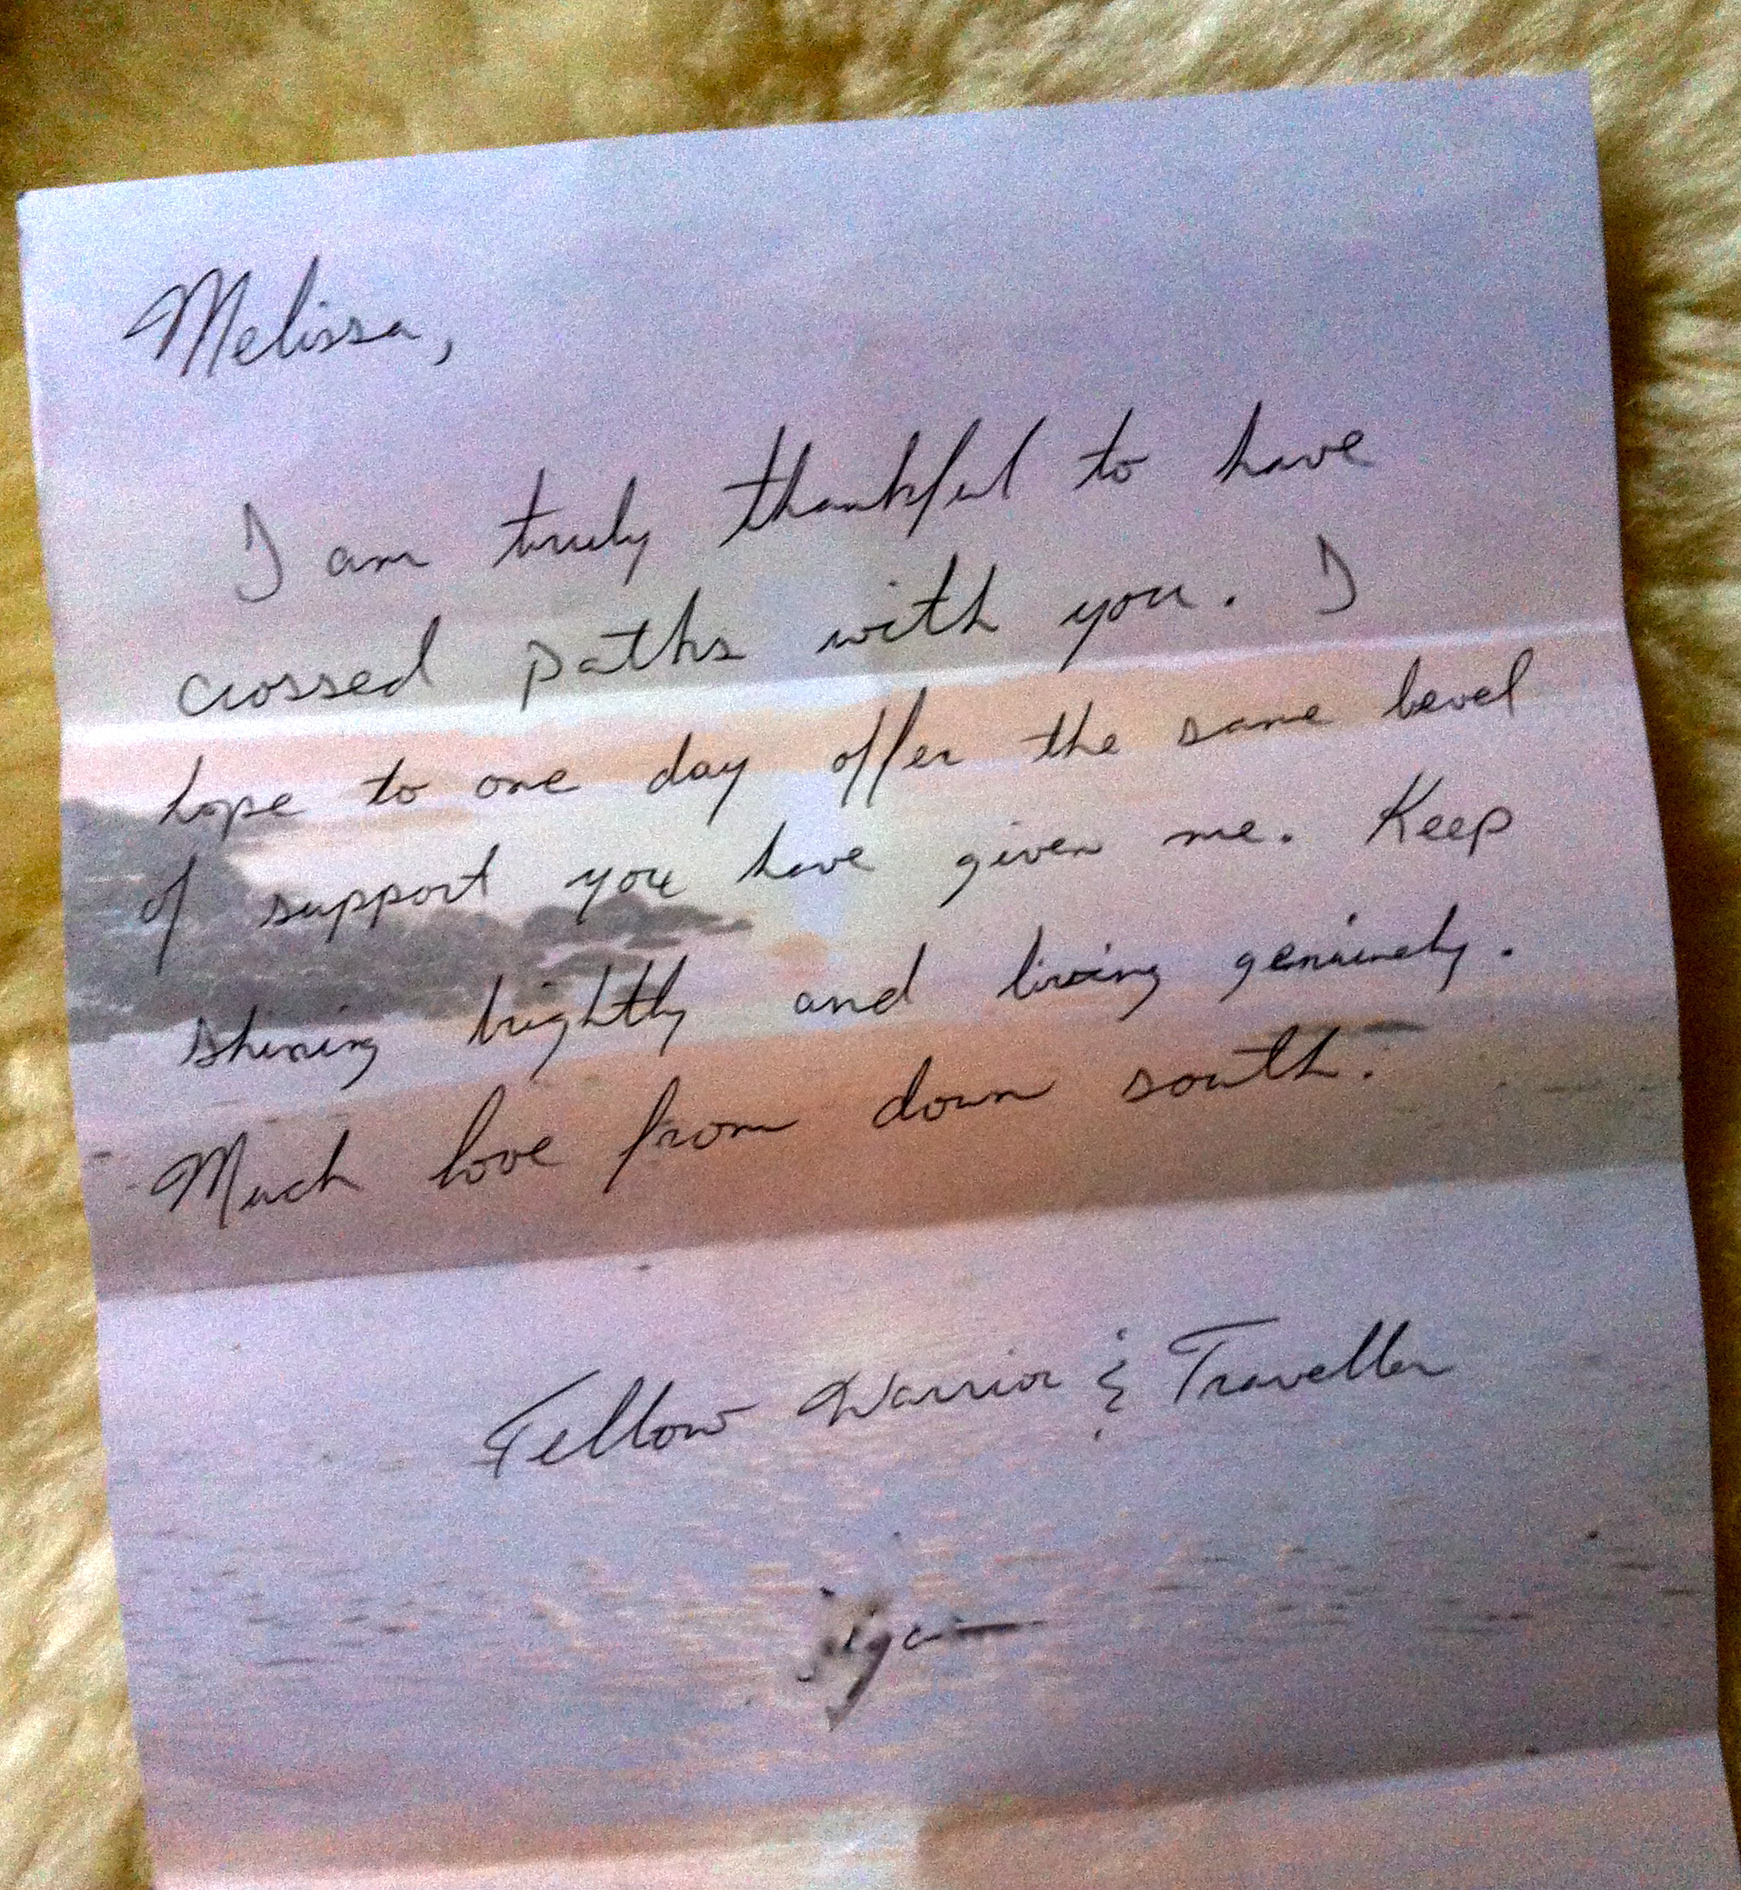 Melissa,
I am truly thankful to have
crossed paths with you. I
hope to one day offer the same level
of support you have given me. Keep
shining brightly and living genuinely.
Much love from down south.
Fellow Warrior & Traveller